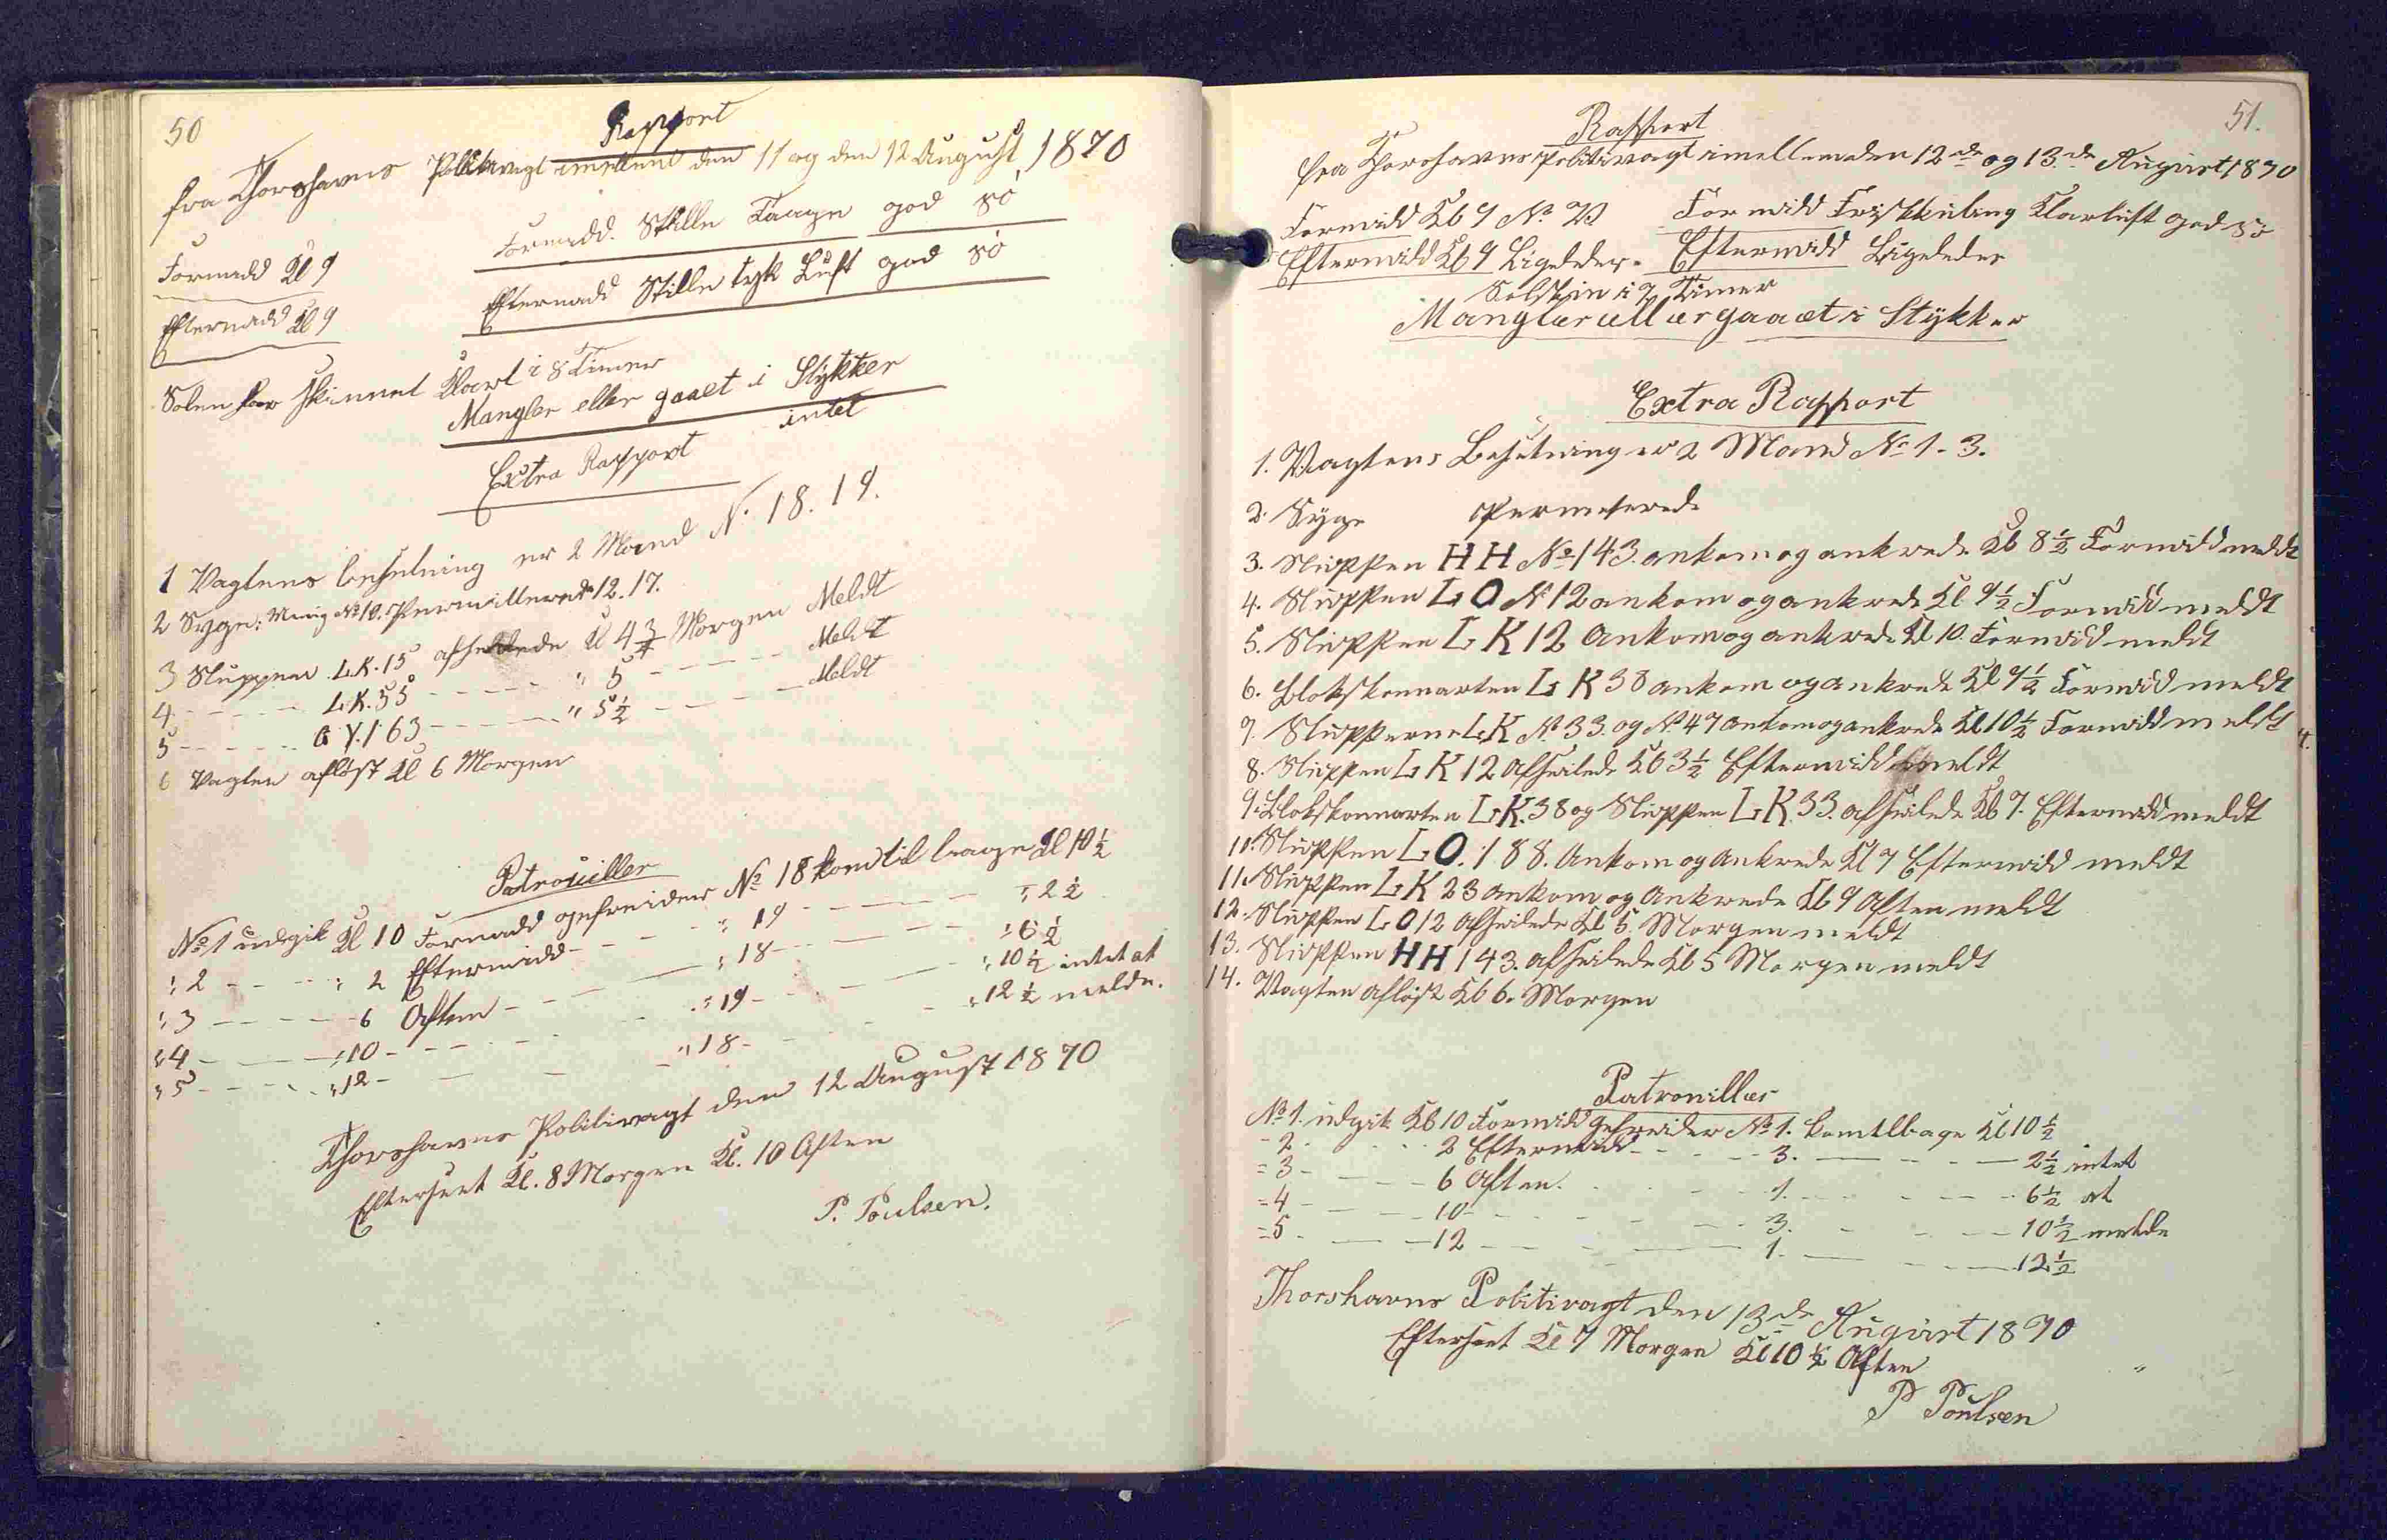 50
Rapport
fra Thorshavns Politivagt imellem den 11 og den 12 August 1870
Formidd Kl 9 Formidd. Stille Taage god Sö
Eftermidd Kl 9 Eftermidd Stille tyk Luft god Sö
Solen har skinnet Klart i 8 Timer
Mangler eller gaaet i Stykker
intet
Extra Rapport
1 Vagtens besetning er 2 Mand N. 18. 19.
2 Syge: Menig No 10. Permitterede 12. 17.
3 Sluppen L.K. 15 afseilede Kl 4 3/4 Morgen Meldt
4 - - - - - L.K. 55 - - - - - " 5 - - - - - Meldt
5 - - - - - G Y. 163 - - - - - " 5 1/2 - - - - Meldt
6 Vagten aflöst Kl 6 Morgen
Patrouiller
No 1 udgik Kl 10 Formidd gefreider No 18 kom til bage Kl 10 1/2
" 2 - - - - " 2 Eftermidd - - - - " 19 - - - - - " 2 1/2
" 3 - - - - - 6 Aften - - - - - " 18 - - - - - " 6 1/2
" 4 - - - - " 10 - - - - - " 19 - - - - - " 10 1/2 intet at
" 5 - - - - " 12 - - - - - " 18 - - - - - " 12 1/2 melde.
Thorshavns Politivagt den 12 August 1870
Efterseet Kl. 8 Morgen Kl. 10 Aften
P. Poulsen.
51.
Rapport
fra Thorshavns Politivagt imellem den 12de og 13.de August 1870
Formidd Kl 9 No V Formidd Frisk kuling Klarluft god Sö
Eftermidd Kl 9 Ligeledes. Eftermidd Ligeledes
Solskin i 7 Timer
Mangler ell er gaaet i Stykker
Extra Rapport
1. Vagtens Besetning er 2 Mand No 1 - 3.
2. Syge Permeterede
3. Sluppen HH No 143. ankom og ankrede Kl 8 1/2 Formidd meldt
4. Sluppen LO N 12 ankom og ankrede Kl 9 1/2 Formidd meldt
5. Sluppen LK 12 Ankom og ankrede Kl 10. Formidd meldt
6. Slotskonnarten LK 38 ankom og ankrede Kl 9 1/2 Formidd meldt
7. Slupperne LK No 33. og No 47 ankom og ankrede Kl 10 1/2 Formidd meldt
8. Sluppen LK 12 Afseilede Kl 3 1/2 Eftermidd meldt
9. Slotskonnarten LK. 38 og Sluppen LK 33. afseilede Kl 7. Eftermidd meldt
10. Sluppen LO. 188. Ankom og Ankrede Kl 7 Eftermidd meldt
11. Sluppen LK 23 ankom og Ankrede Kl 9 Aften meldt
12. Sluppen LO 12 Afseilede Kl 5. Morgen meldt
13. Sluppen HH 143. afseilede Kl 5 Morgen meldt
14. Vagten aflöst Kl 6. Morgen
Patrouiller
No 1. udgik Kl 10 Formidd gefreider No 1. kom tilbage Kl 10 1/2
- 2 - - - - 2 Eftermidd - - - - 3. - - - - 2 1/2 intet
= 3 - - - - 6 Aften. - - - - 1. - - - - 6 1/2 at
= 4 - - - - 10 - - - - 3. - - - - 10 1/2 melde
= 5 - - - - 12 - - - - 1. - - - - 12 1/2
Thorshavns Politivagt den 13de August 1870
Efterseet Kl 7 Morgen Kl 10 1/2 Aften
P Poulsen